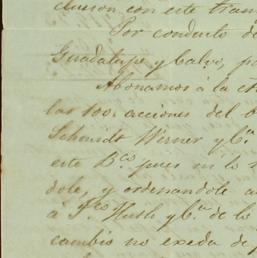 cluson con este tran
Por conducto de
Guadalupe y Calvo, p
Abonamos á la c
las 100. acciones del
Schmidt Werner y Cª
este Bco pues ni lo
dole, y ordenandole a
á Fco Huth y Cª de lo
cambio no exeda de